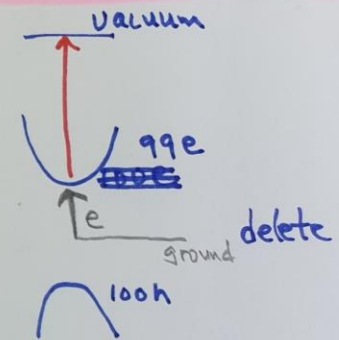 vacuum
99e
100e
e
ground
delete
100h